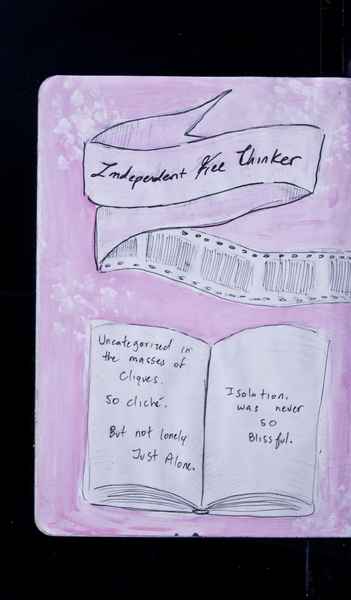 Independent Free Thinker
Uncategorized in
the masses of
Cliques.
So cliché.
But not lonely
Just Alone.
Isolation.
was never
so
Blissful.